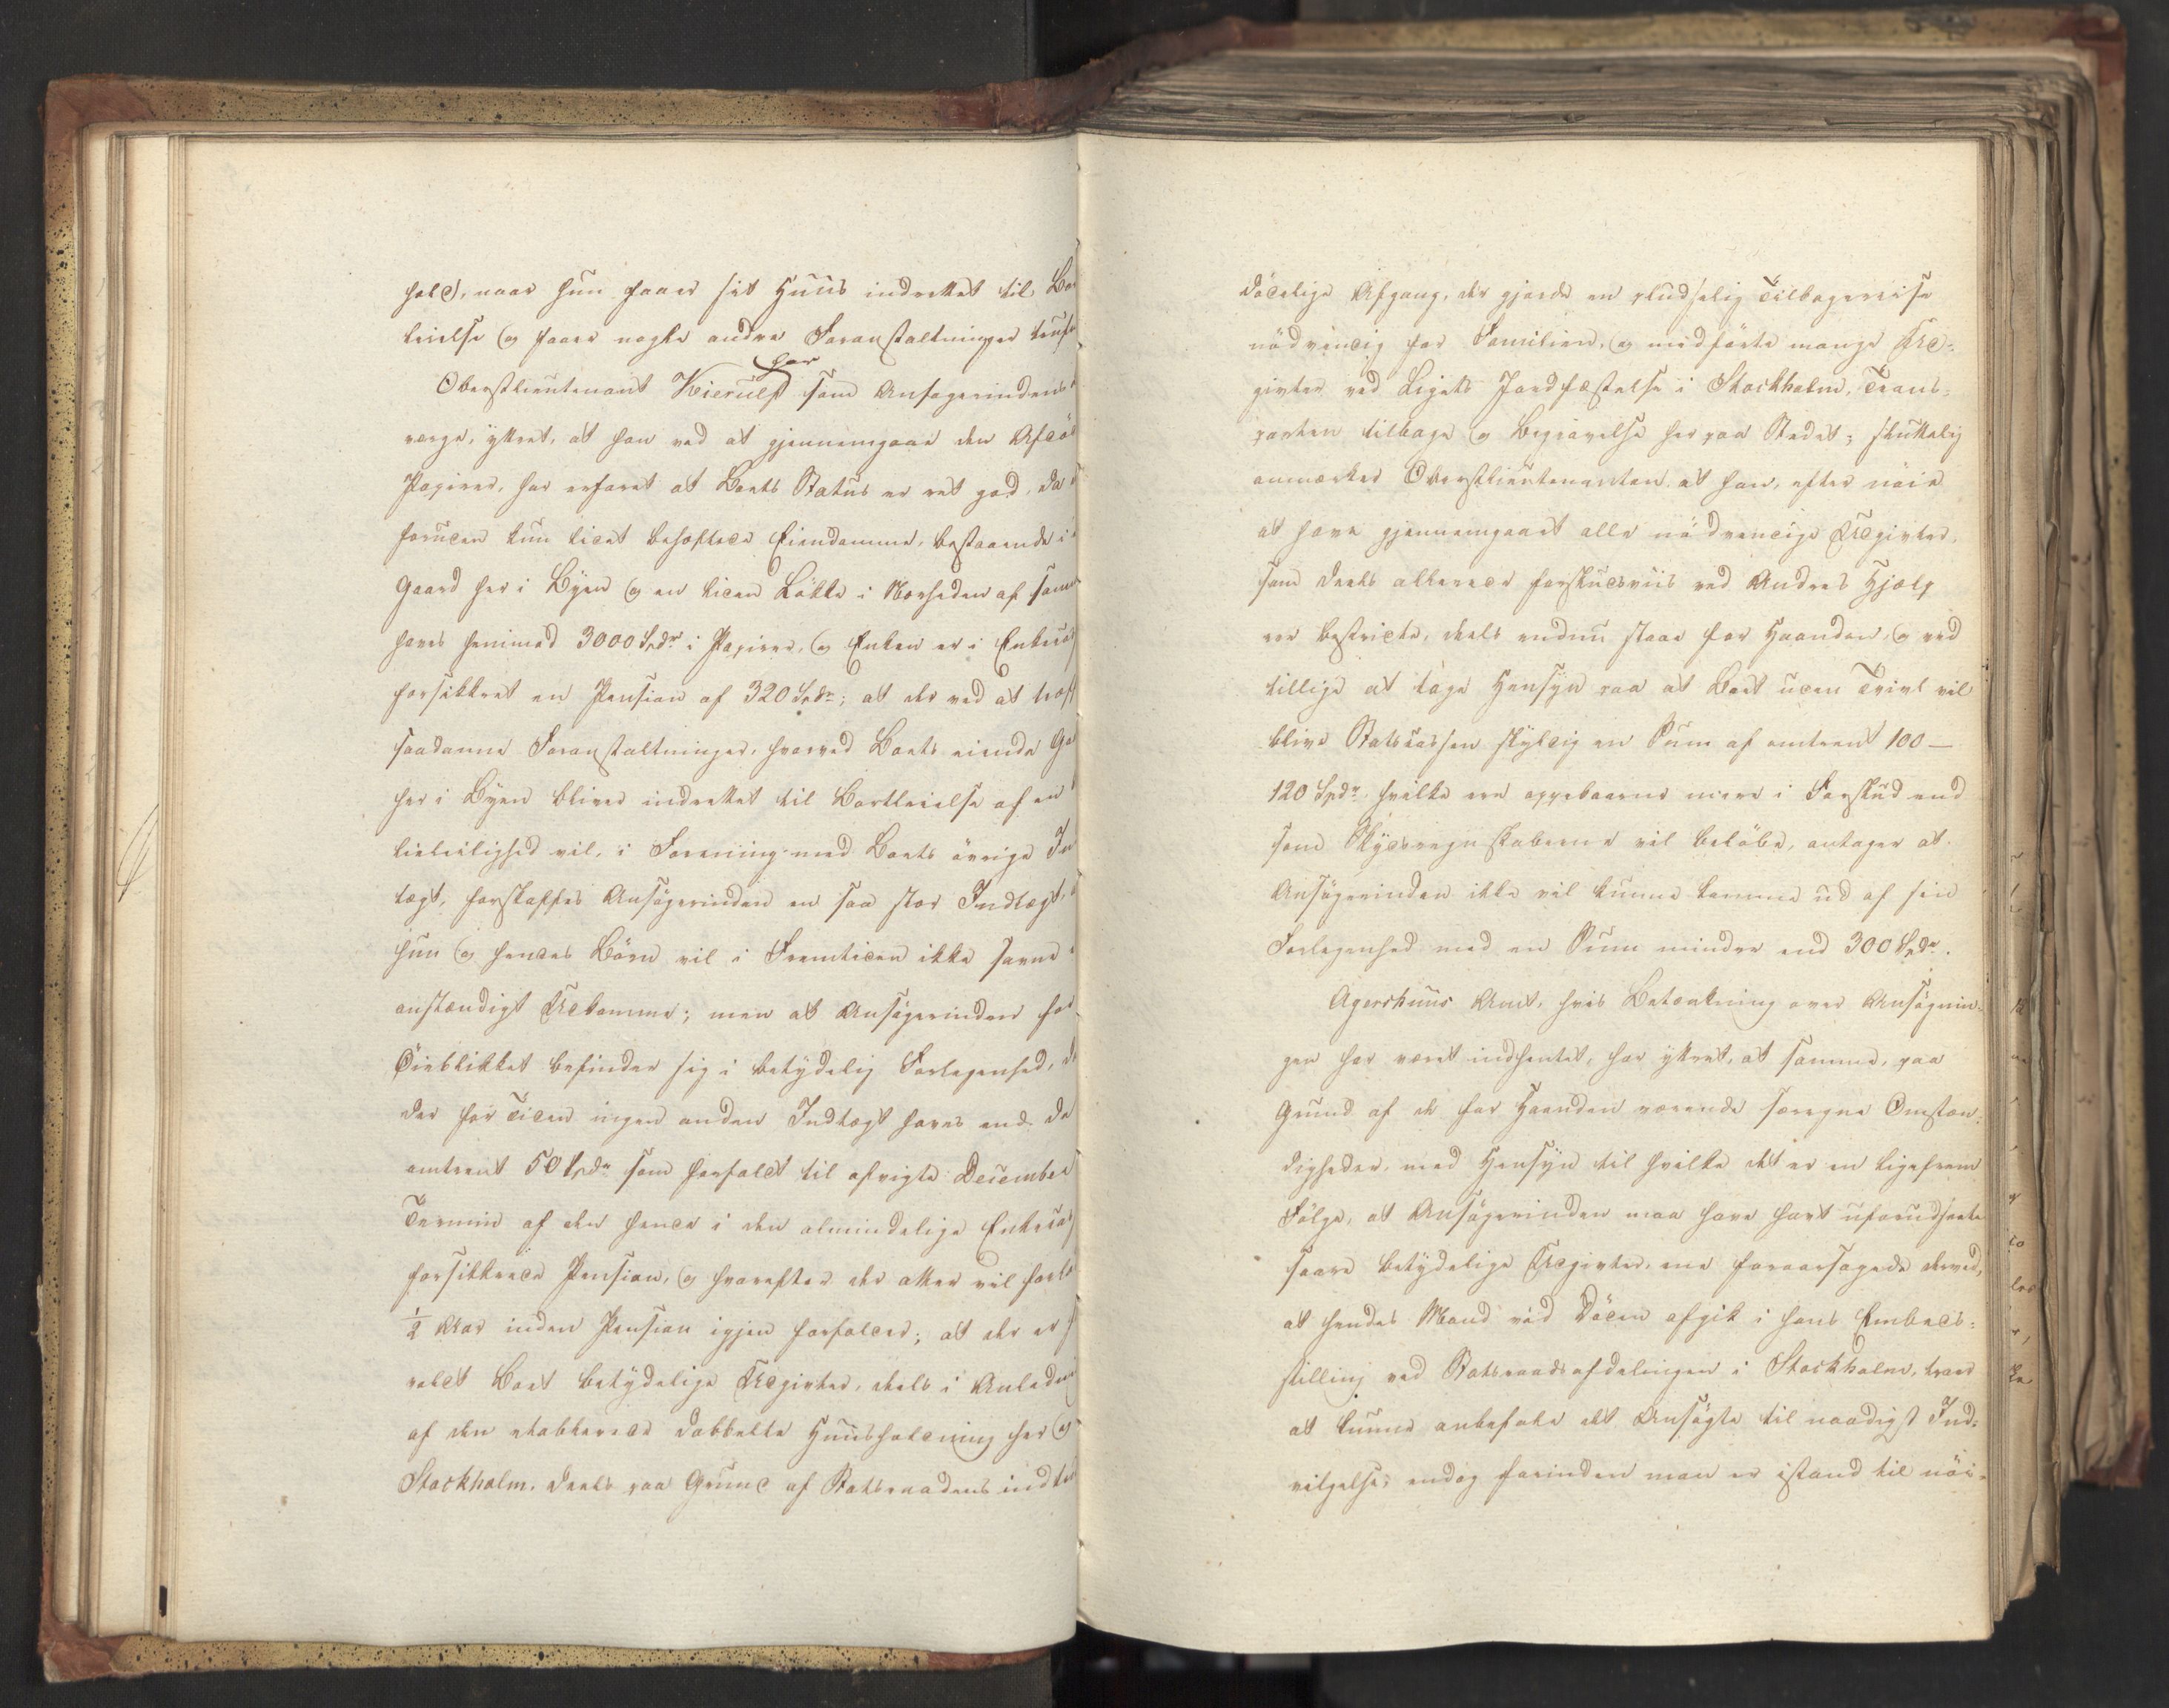 hold, naar hun faaer sit Huus indrettet til Bo
leielse og faaer nogle andre Foranstaltninger trufn
har
Oberstlieutenant Kierulf som Ansøgerindens
værge, yttret, at han ved at gjennemgaae den Afdø
Papirer, har erfaret at Boets Status er ret god, da
foruden kun lidet behæftede Eiendomme, bestaaende i
Gaard her i Byen og en liden Løkke i Nærheden af samm
haves henimod 3000 Spdr i Papirer, og Enken er i Enkecas
forsikkret en Pension af 320 Spdr; at der ved at træf
saadanne Foranstaltninger, hvorved Boets eiende Ga
her i Byen bliver indrettet til Bortleielse af en
leielighed vil, i Forening med Boets øvrige In
tægt, forskaffes Ansøgerinden en saa stor Indtægt,
hun og hendes Børn vil i Fremtiden ikke savne
anstændigt Udkomme; men at Ansøgerinden for
Øieblikket befinder sig i betydelig Forlegenhed, d
der for Tiden ingen anden Indtægt haves end de
omtrent 50 Spdr som forfaldt til afvigte December
Termin af den hende i den almindelige Enkecas
forsikkrede Pension, og hvorefter der atter vil forlø
½ Aar inden Pension igjen forfalder; at der er
voldt Boet betydelige Udgivter, deels i Anledni
af den etablerede dobbelte Huusholdning her og
Stockholm, deels paa Grund af Statsraadens indtr
dødelige Afgang, der gjorde en pludselig Tilbagereise
nødvendig for Familien, og medførte mange Ud-
givter ved Ligets Jordfæstelse i Stockholm, Trans-
porten tilbage og Begravelse her paa Stedet; sluttelig
anmærker Oberstlieutenanten, at han, efter nøie
at have gjennemgaaet alle nødvendige Udgivter,
som deels allerede forskudsviis ved Andres Hjælp
ere bestridte, deels endnu staae for Haanden, og ved
tillige at tage Hensyn paa at Boet uden Tvivl vil
blive Statscassen skyldig en Sum af omtrent 100 —
120 Spdr hvilke ere oppebaarne mere i Forskud end
som Skydsregnskaberne vil beløbe, antager at
Ansøgerinden ikke vil kunne komme ud af sin
Forlegenhed med en Sum mindre end 300 Spdr.
Agershuus Amt, hvis Betænkning over Ansøgnin-
gen har været indhentet, har yttret, at samme, paa
Grund af de for Haanden værende særegne Omstæn-
digheder, med Hensyn til hvilke det er en ligefrem
Følge, at Ansøgerinden maa have havt uforudseete
saare betydelige Udgivter, ene foraarsagede derved,
at hendes Mand ved Døden afgik i hans Embeds-
stilling ved Statsraadsafdelingen i Stockholm, troer
at kunne anbefale det Ansøgte til naadigst Ind-
vilgelse; endog forinden man er istand til nøi-